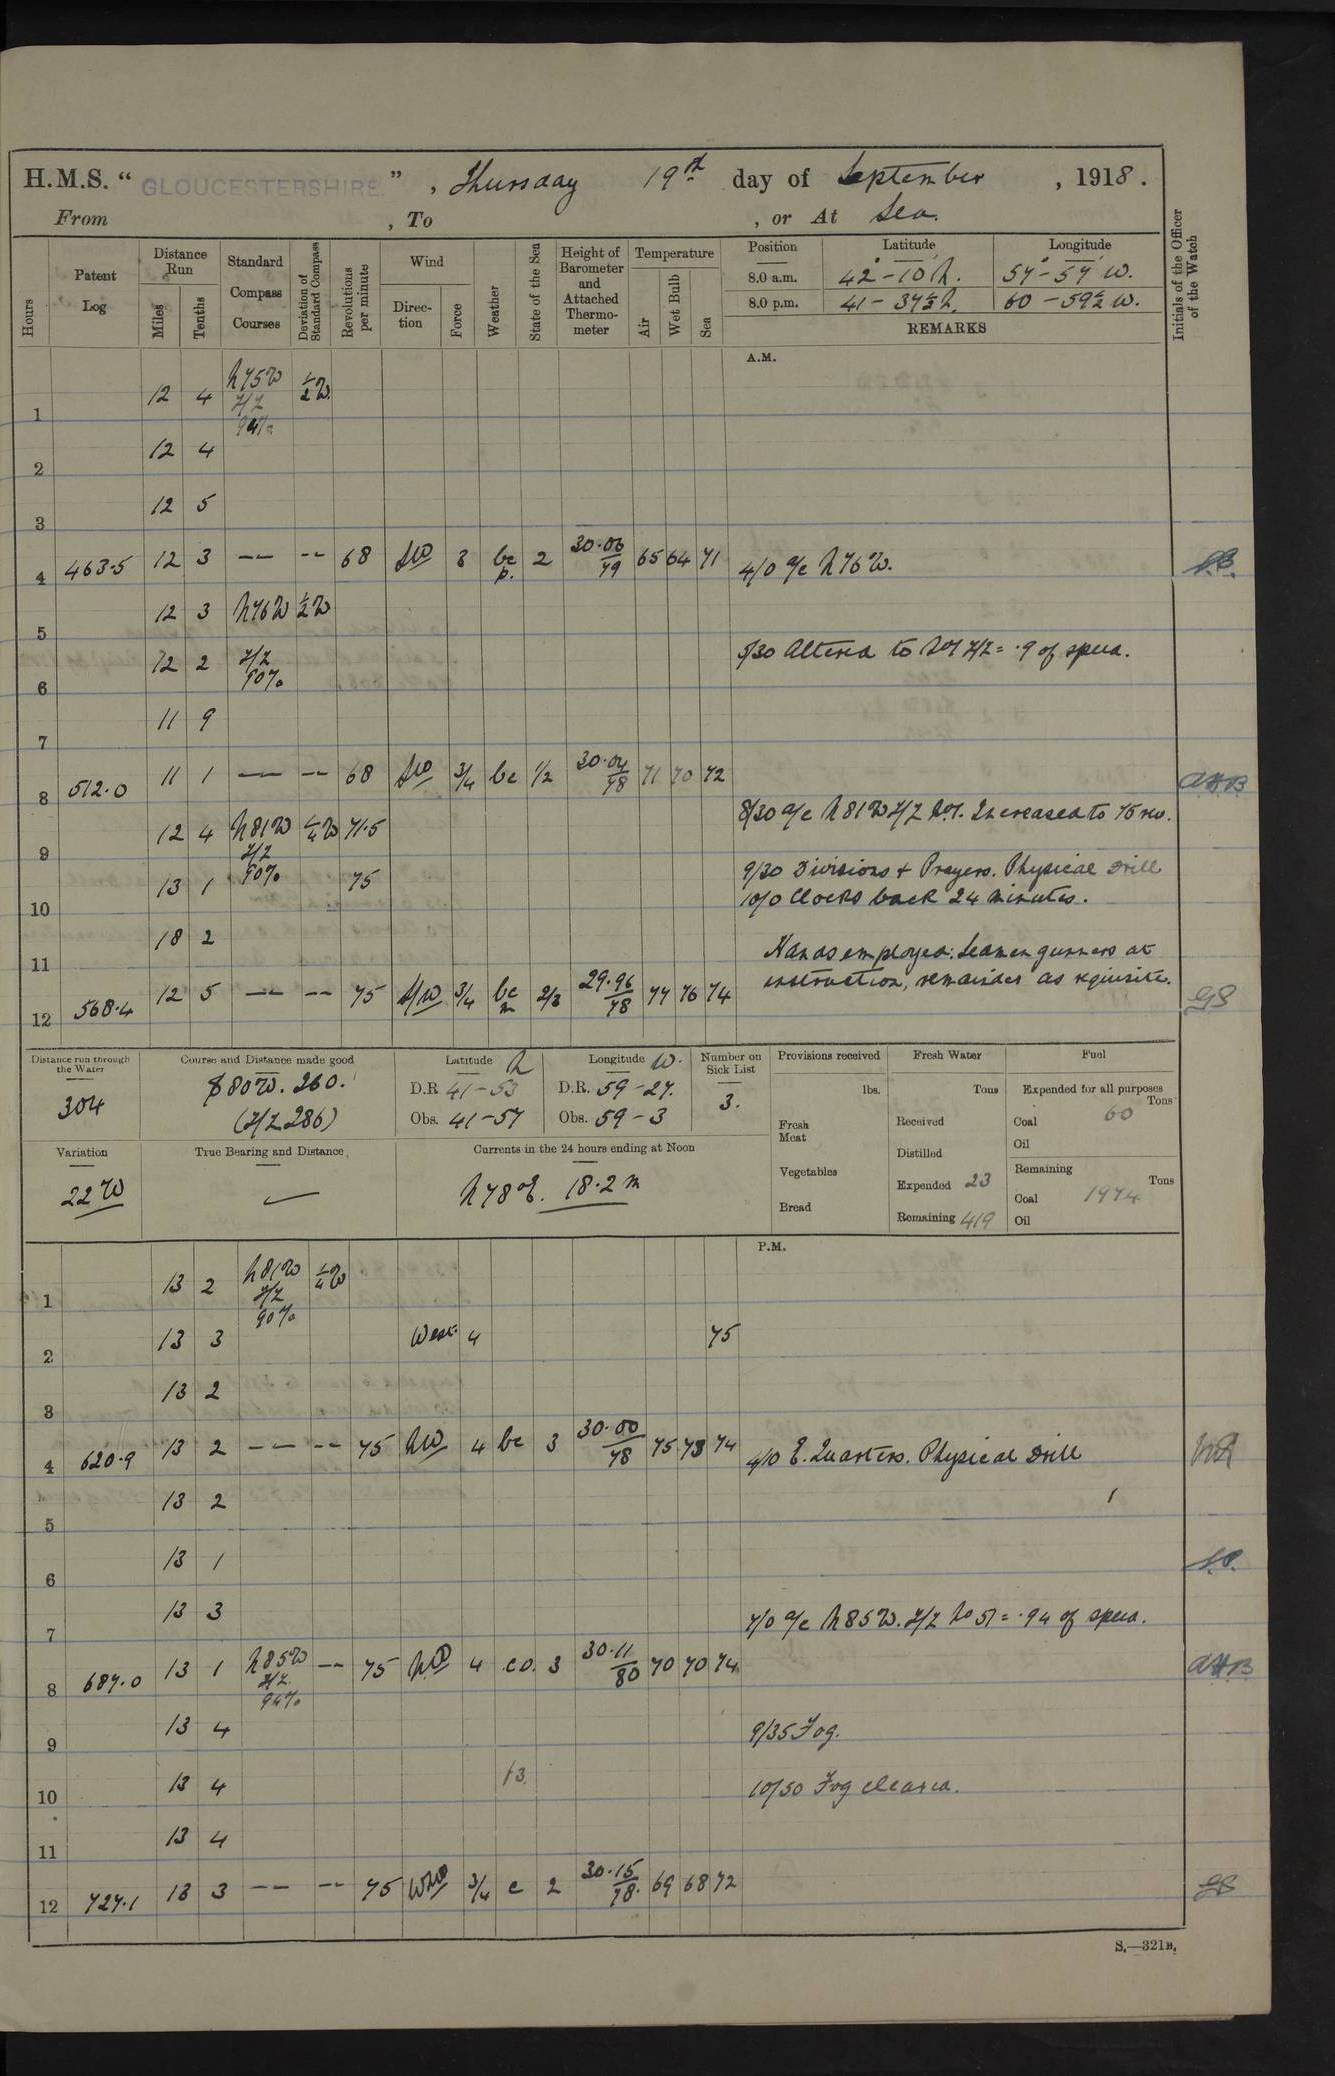 H.M.S. “ GLOUCESTERSHIRE ”, Thursday 19th day of September, 1918.
From , To , or At Sea.
Hours
Patent Log
Distance Run
Miles
Tenths
Standard Compass Courses
Deviation of Standard Compass
Revolutions per minute
Wind
Direction
Force
Weather
State of the Sea
Height of Barometer and Attached Thermometer
Temperature
Air
Wet Bulb
Sea
Position Latitude Longitude
8.0 a.m. 42°-10' N. 57-57 W.
8.0 p.m. 41-37½ N. 60-59½ W.
REMARKS
Initials of the Officer of the Watch
A.M.
1 12 4 N75W ½W.
Z/Z
94%
2 12 4
3 12 5
4 463.5 12 3 -- -- 68 SW 3 bc p. 2 30.06/79 65 64 71 4/0 a/c N76W.
5 12 3 N76W ½W
6 12 2 Z/Z 90% 5/30 Altered to No 7 Z/Z = .9 of speed.
7 11 9
8 512.0 11 1 -- -- 68 SW 3/4 bc 1/2 30.04/78 71 70 72 AHB
9 12 4 N81W ¼W 71.5 8/30 a/c N81W Z/Z No 7. Increased to 75 rev.
Z/Z
90%
10 13 1 75 9/30 Divisions + Prayers. Physical Drill
10/0 Clocks back 24 minutes.
11 13 2 Hands employed: Seamen gunners at
12 568.4 12 5 -- -- 75 SW 3/4 bc m 2/3 29.96/78 77 76 74 instruction, remainder as requisite. GS
Distance run through the Water
304
Course and Distance made good
S80W. 260.
(Z/Z 286)
Latitude N
D.R. 41-53
Obs. 41-57
Longitude W.
D.R. 59-27.
Obs. 59-3
Number on Sick List
3.
Provisions received
lbs.
Fresh Meat
Vegetables
Bread
Fresh Water
Tons
Received
Distilled
Expended 23
Remaining 419
Fuel
Expended for all purposes
Tons
Coal 60
Oil
Remaining
Tons
Coal 1974
Oil
Variation
22 W
True Bearing and Distance
Currents in the 24 hours ending at Noon
N78E. 18.2 m
P.M.
1 13 2 N81W ¼W
Z/Z
90%
2 13 3 West. 4 75
3 13 2
4 620.9 13 2 -- -- 75 NW 4 bc 3 30.00/78 75 73 74 4/0 E. Quarters. Physical Drill
5 13 2
6 13 1
7 13 3 7/0 a/c N85W. Z/Z No 51 = .94 of speed.
8 687.0 13 1 N85W -- 75 NW 4 c.o. 3 30.11/80 70 70 74 AHB
Z/Z
94%
9 13 4 9/35 Fog.
10 13 4 13. 10/50 Fog cleared.
11 13 4
12 727.1 13 3 -- -- 75 WNW 3/4 c 2 30.15/78. 69 68 72 GS
S.—321B.